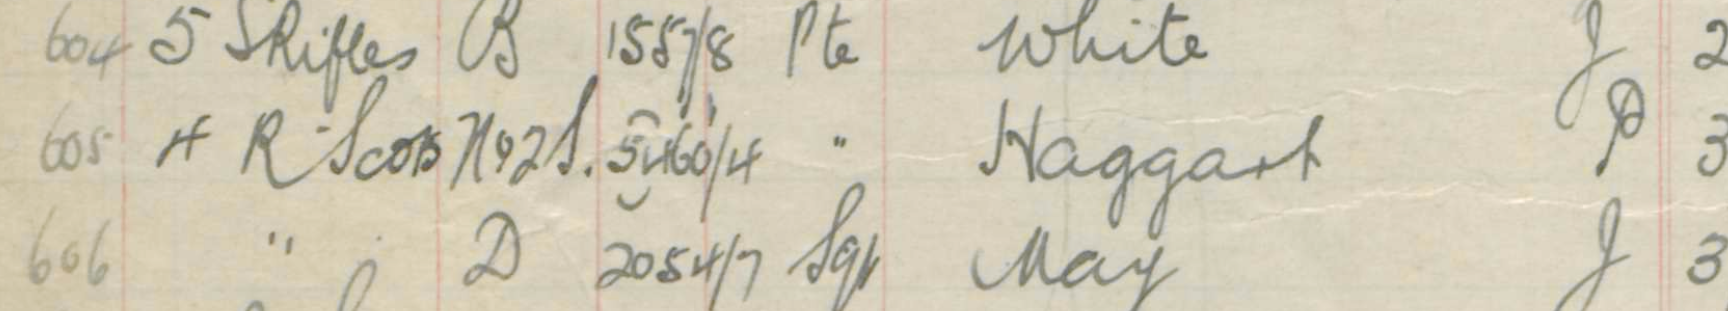 604 5 S Rifles B 1557/8 Pte White J 2
605 4 R Scots Hq 2 S. 5460/4 " Haggart P 3
606 " D 2054/7 Sgt May J 3